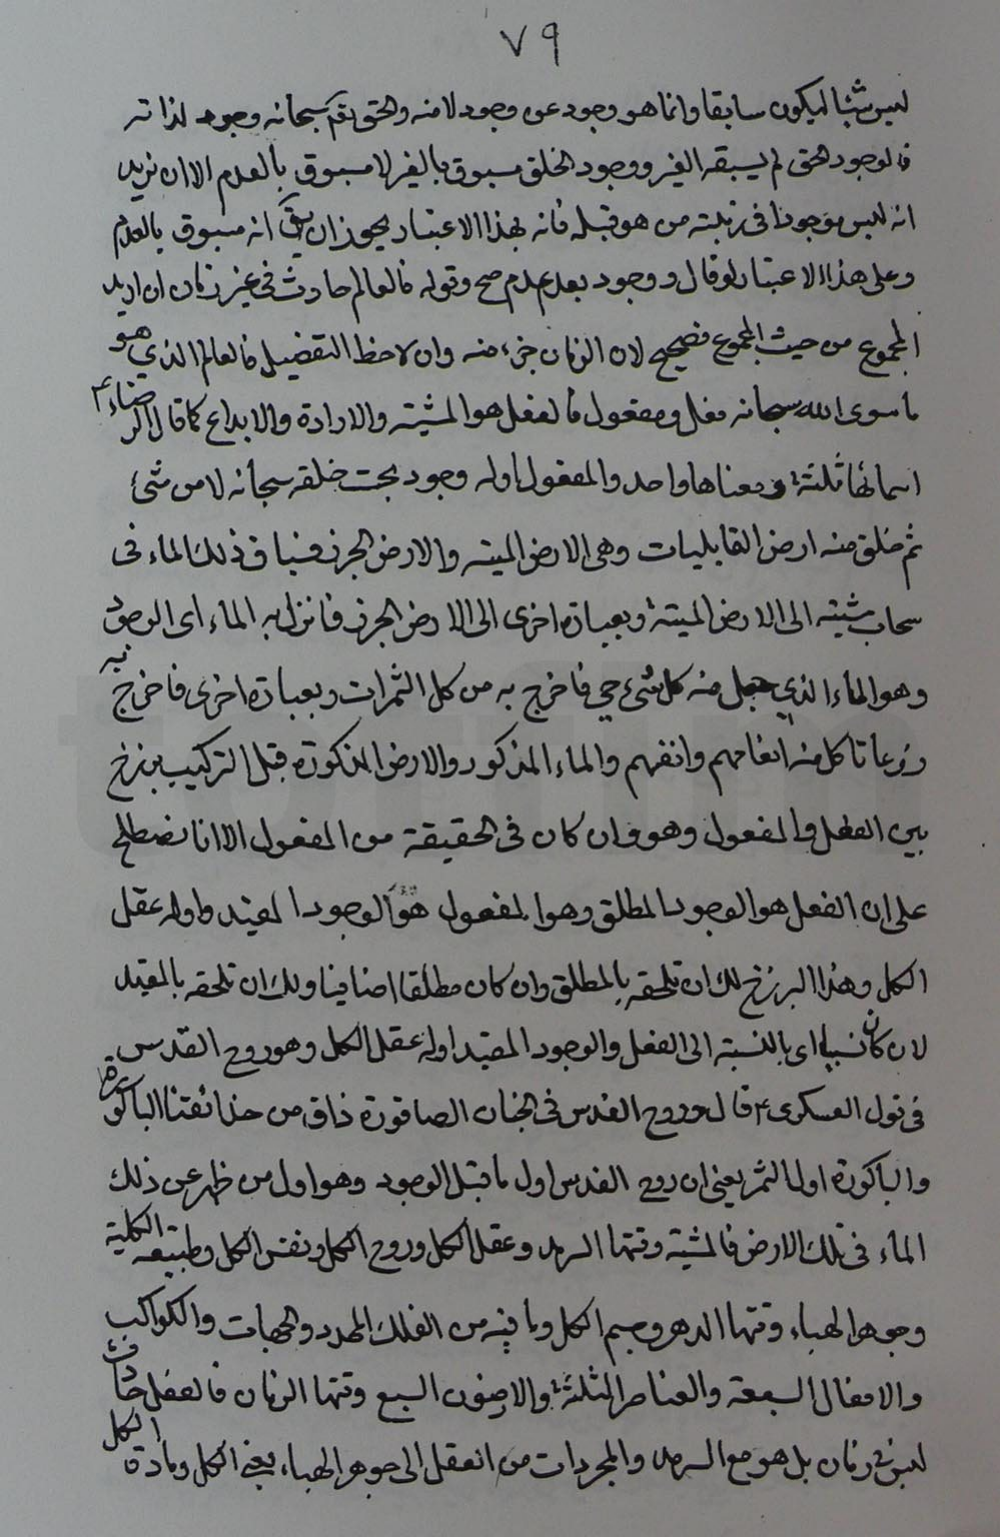 ٧٩
ليس شيئا ليكون سابقا وانما هو وجود عن وجود لا منه والحق تقم سبحانه وجوده لذاته
فالوجود الحق لم يسبقه الغير ووجود الخلق مسبوق بالغير لا مسبوق بالعدم الا ان نريد
انه ليس موجودا فى رتبته من هو قبله فانه بهذا الاعتبار يجوز ان يق انه مسبوق بالعدم
وعلى هذا الاعتبار لو قال ووجود بعد عدم صح وقوله فالعالم حادث فى غير زمان ان اريد
المجموع من حيث المجموع فصحيح لان الزمان جزء منه وان لاحظ التفصيل فالعالم الذي هو
ما سوى الله سبحانه فعل ومفعول فالفعل هو المشية والارادة والابداع كما قال الرضاء ع
اسمائها ثلثة ومعناها واحد والمفعول اوله وجود بحت خلقه سبحانه لا من شئ
ثم خلق منه ارض القابليات وهى الارض الميتة والارض الجرز فساق ذلك الماء فى
سحاب مشيته الى الارض الميتة وبعبارة اخرى الى الارض الجرز فانزل به الماء اى الوجود
وهو الماء الذي جعل منه كل شئ حي فاخرج به من كل الثمرات وبعبارة اخرى فاخرج به
زرعا تاكل منه انعامهم وانفسهم والماء المذكور والارض المذكورة قبل التركيب برزخ
بين الفعل والمفعول وهو وان كان فى الحقيقة من المفعول الا انا نصطلح
على ان الفعل هو الوجود المطلق وهو المفعول هو الوجود المقيد واوله عقل
الكل وهذا البرزخ لك ان تلحقه بالمطلق وان كان مطلقا اضافيا ولك ان تلحقه بالمقيد
لان كان نسبيا اى بالنسبة الى الفعل والوجود المقيد اوله عقل الكل وهو روح القدس
فى قول العسكرى ع قال وروح القدس فى الجنان الصاقورة ذاق من حدائقنا الباكورة
والباكورة اول الثمر يعنى ان روح القدس اول ما قبل الوجود وهو اول من ظهر عن ذلك
الماء فى تلك الارض فالمشية وقتها السرمد وعقل الكل وروح الكل ونفس الكل وطبيعة الكلية
وجوهر الهباء وقتها الدهر وجسم الكل وما فيه من الفلك المحدد والجهات والكواكب
والافعال السبعة والعناصر الثلثة والارضون السبع وقتها الزمان فالفعل حادث
ليس فى زمان بل هو مع السرمد والمجردات من العقل الى جوهر الهباء يعنى الكل ومادة الكل